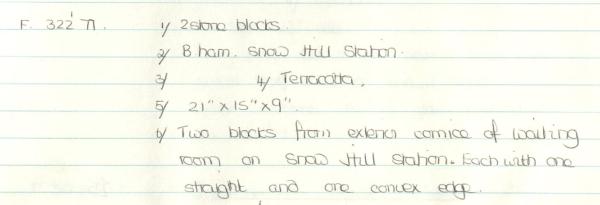 F. 322' 71. 1/ 2 stone blocks.
2/ B'ham. Snow Hill Station.
3/ 4/ Terracotta.
5/ 21" x 15" x 9".
6/ Two blocks from exterior cornice of waiting
room on Snow Hill Station. Each with one
straight and one convex edge.